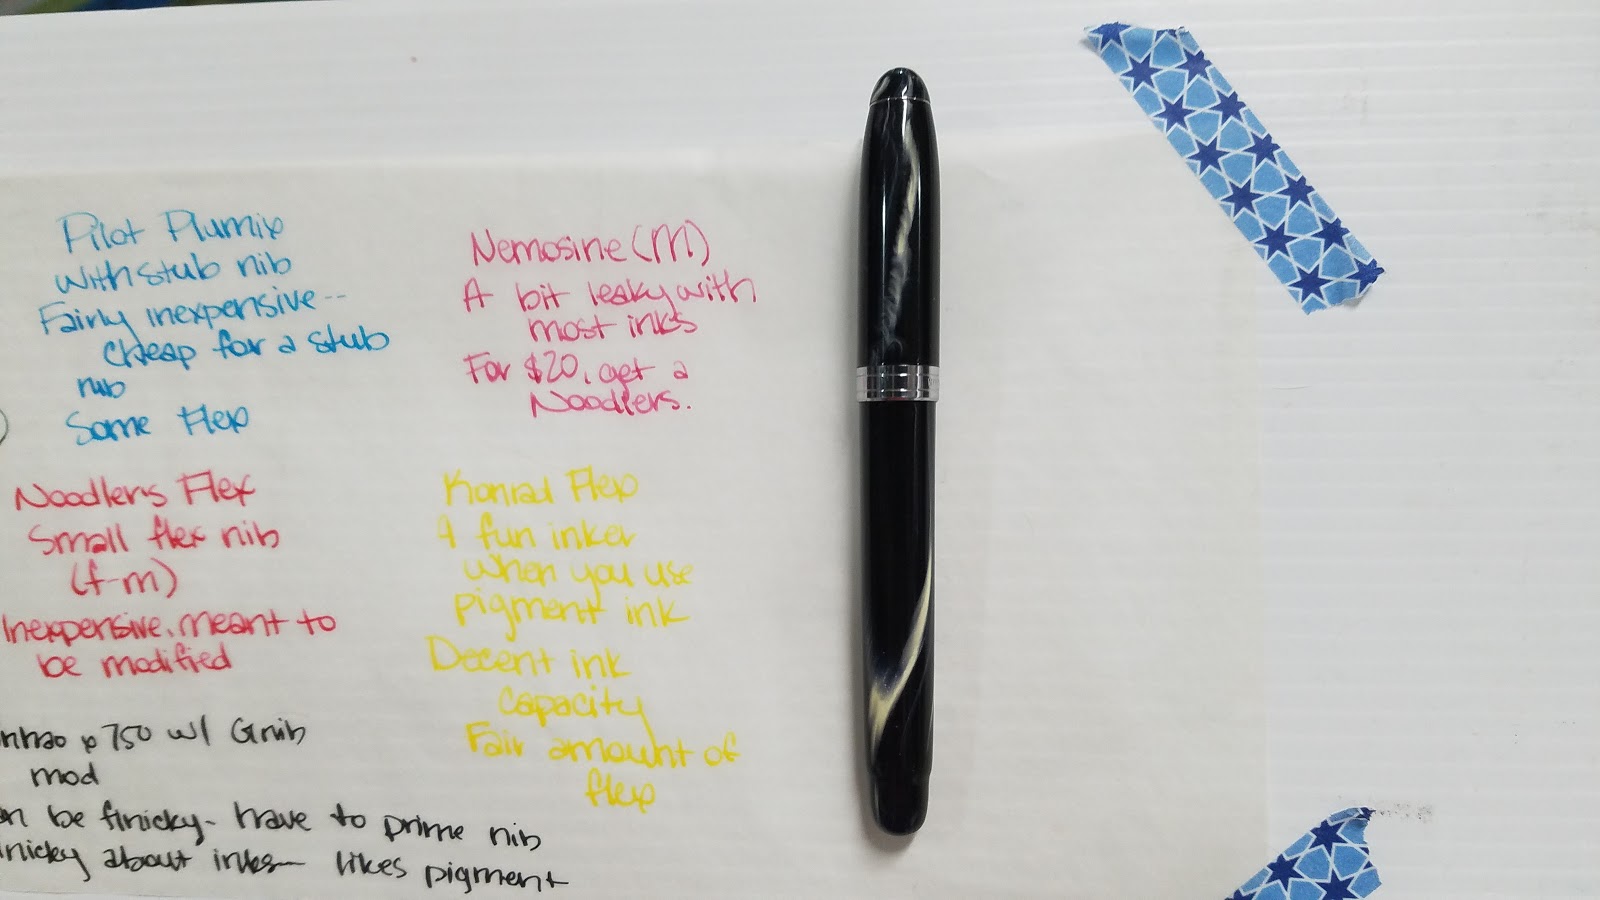 Pilot Plumix
with stub nib
Fairly inexpensive--
cheap for a stub
nib
Some Flex
Nemosine (M)
A bit leaky with
most inks
For $20, get a
Noodlers.
Noodlers Flex
Small flex nib
(f-m)
Inexpensive, meant to
be modified
Konrad Flex
A fun inker
when you use
pigment ink
Decent ink
capacity
Fair amount of
flex
nhao x 750 w/ G nib
mod
n be finicky- have to prime nib
nicky about inks— likes pigment